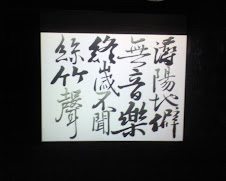 潯陽地僻
無音樂
終歲不聞
絲竹聲